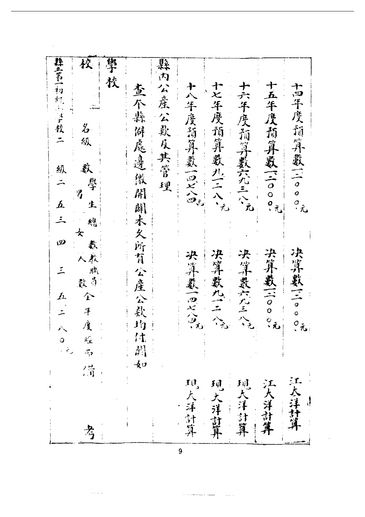 十四年度預算數一二〇〇〇元 决算數一二〇〇〇元 江大洋計算
十五年度預算數一二〇〇〇元 决算數一二〇〇〇元 江大洋計算
十六年度預算數六九三八元 决算數六九三八元 現大洋計算
十七年度預算數九一二八元 决算數九一二八元 現大洋計算
十八年度預算數一四七八四元 决算數一四七八四元 現大洋計算
縣内公產公欵及其管理
查本縣僻處邊徼開闢未久所有公產公欵均付闕如
學校
校名 級數 學生總數 男 女 教職員人數 全年度經費 備考
縣立第一初級小學校 二級 二五三四三五二八〇元
9